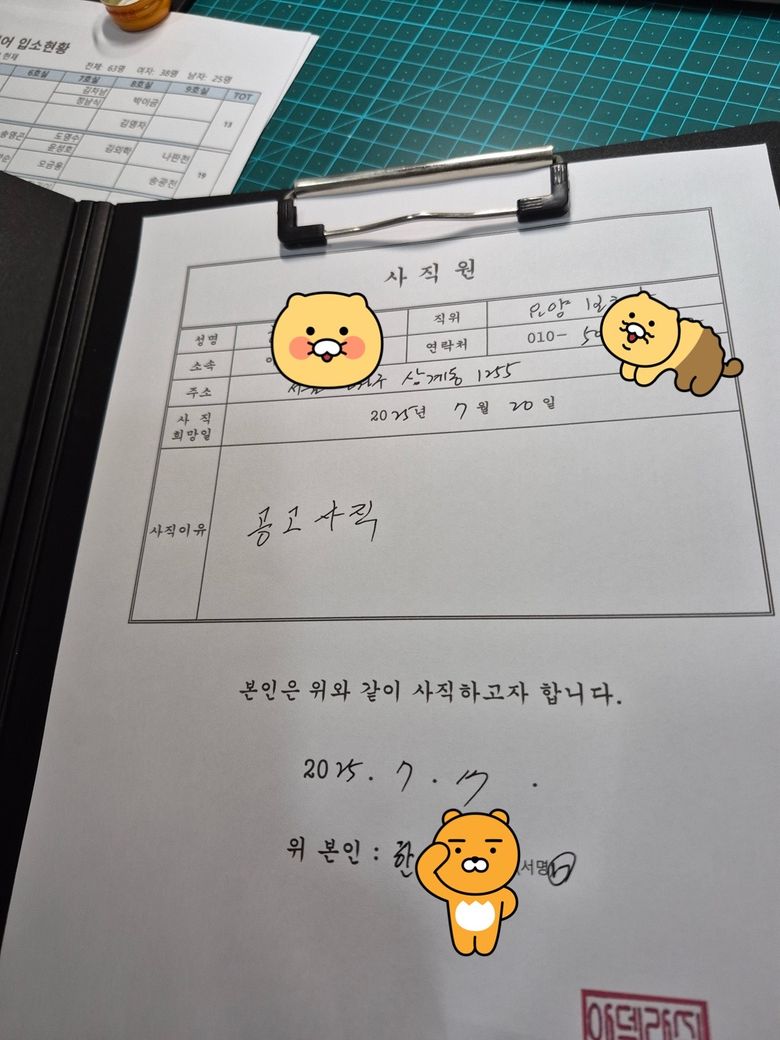 입소현황
현재 전체: 63명 여자: 38명 남자: 25명
6호실 7호실 8호실 9호실 TOT
김차남 박이금
정남식
김영자 13
도영수 김의학 나판천
윤성호
오금용 송광전 19
사 직 원
성명 직위 요양
소속 연락처 010-
주소 삼계동 1255
사 직 희망일 2025년 7월 20일
사직이유 권고사직
본인은 위와 같이 사직하고자 합니다.
2025. 7. 17.
위 본인 : 한 (서명)